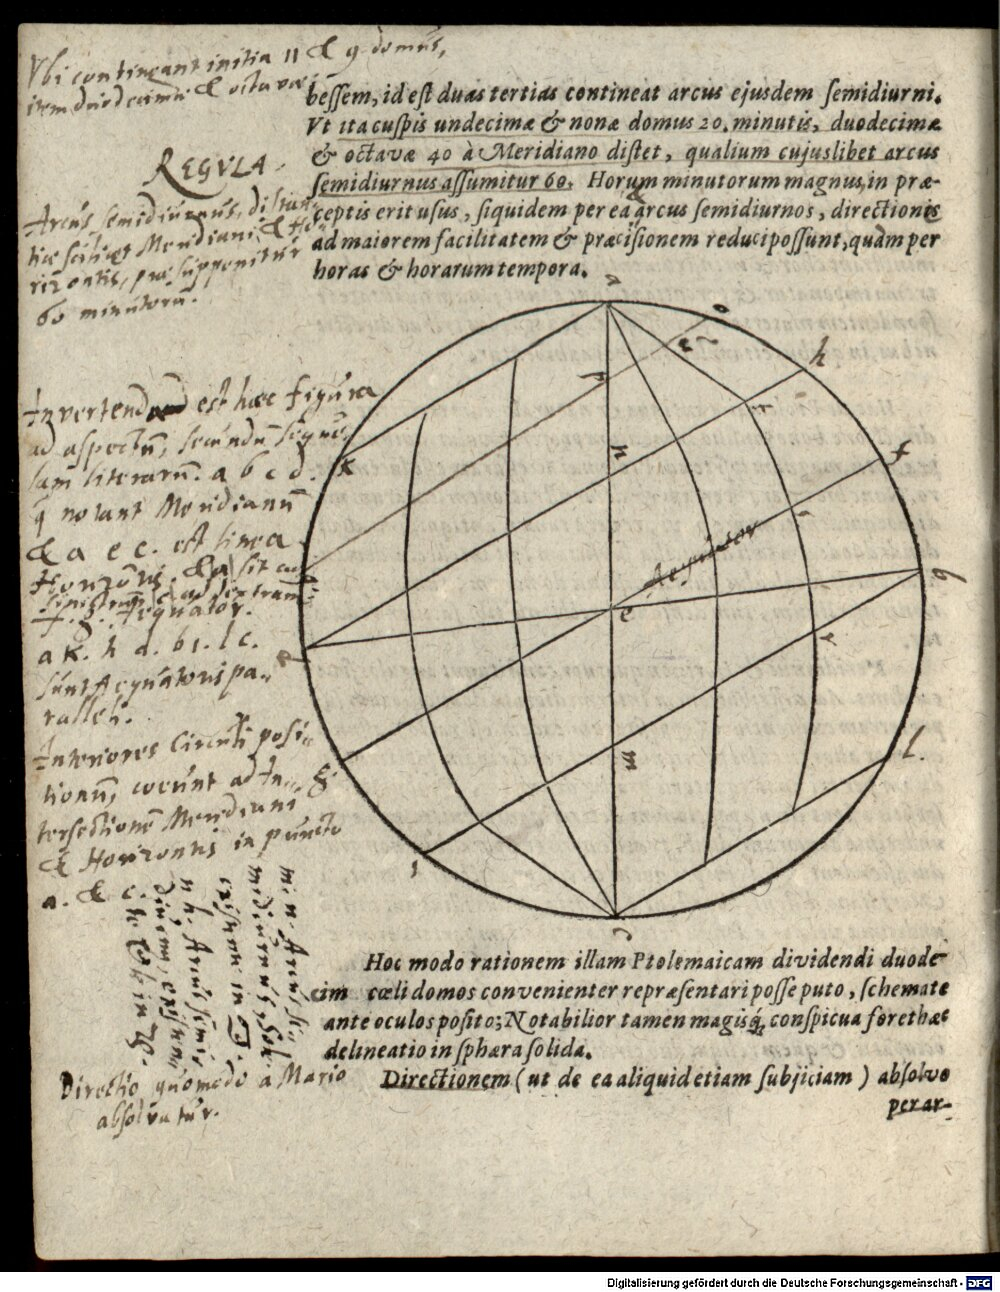 Vbi contingant initia 11 & 9 domus,
item duodecimæ & octavæ
bessem, id est duas tertias contineat arcus ejusdem semidiurni.
Vt ita cuspis undecimæ & nonæ domus 20. minutis, duodecimæ
& octavæ 40 à Meridiano distet, qualium cujuslibet arcus
semidiurnus assumitur 60. Horum minutorum magnus, in præ-
ceptis erit usus, siquidem per ea & arcus semidiurnos, directiones
ad maiorem facilitatem & præcisionem reduci possunt, quàm per
horas & horarum tempora.
REGVLA.
Arcus semidiurnus, distan-
tiæ scilicet Meridiani, & Ho-
rizontis, præsupponitur
60 minutorū.
Invertenda est hæc figura
ad aspectū, secundū
literarū. a b c d.
q notant Meridianū
& a e c. est linea
Horizontis.
f. g. Æquator.
a k. h d. b i. l c.
sunt Æquatoris pa-
ralleli.
Interiores Circuli posi-
tionū, coeunt ad In-
tersectionē Meridiani
& Horizontis in puncto
a. & c.
a
o
h
k
n
r
f
Aequator
e
b
d
m
g
l
i
c
Hoc modo rationem illam Ptolemaicam dividendi duode-
cim cœli domos convenienter repræsentari posse puto, schemate
ante oculos posito; Notabilior tamen magisq́; conspicua foret hæc
delineatio in sphæra solida.
Directio quomodo a Mario
absolvatur.
Directionem (ut de ea aliquid etiam subjiciam) absolvo
per ar-
Digitalisierung gefördert durch die Deutsche Forschungsgemeinschaft - DFG